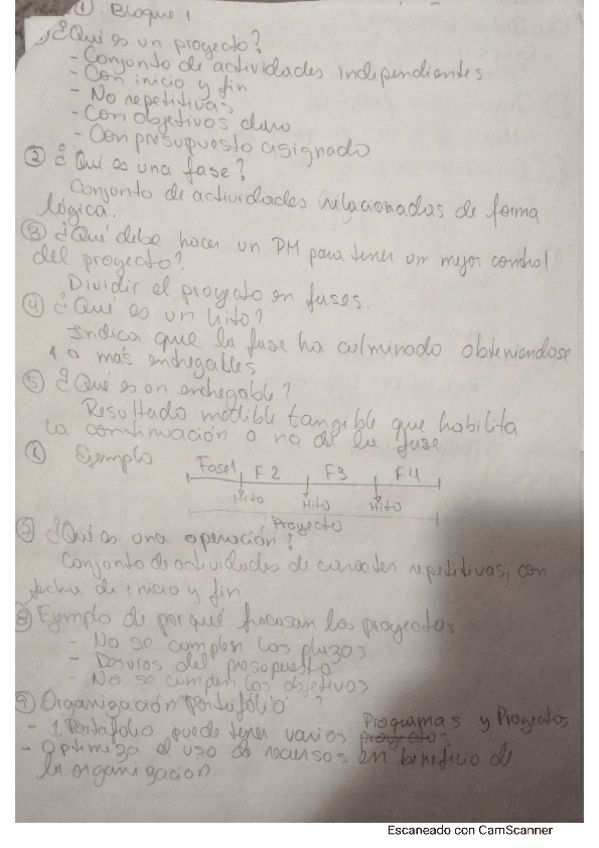 ① Bloque 1
1) ¿Qué es un proyecto?
- Conjunto de actividades independientes
- Con inicio y fin
- No repetitivas
- Con objetivos claro
- Con presupuesto asignado
② ¿Qué es una fase?
Conjunto de actividades relacionadas de forma
lógica.
③ ¿Qué debe hacer un PM para tener un mejor control
del proyecto?
Dividir el proyecto en fases.
④ ¿Qué es un hito?
Indica que la fase ha culminado obteniendose
1 o más entregables
⑤ ¿Qué es un entregable?
Resultado medible tangible que habilita
la continuación o no de la fase
⑥ Ejemplo
Fase1 F2 F3 F4
Hito Hito Hito
Proyecto
⑦ ¿Qué es una operación?
Conjunto de actividades de caracter repetitivas, con
fecha de inicio y fin
⑧ Ejemplo de por qué fracasan los proyectos
- No se cumplen los plazos
- del presupuesto
- No se cumplen los objetivos
⑨ Organización "Portafolio" ?
- 1 Portafolio puede tener varios Programas y Proyectos
- Optimiza el uso de recursos en beneficio de
la organización
Escaneado con CamScanner